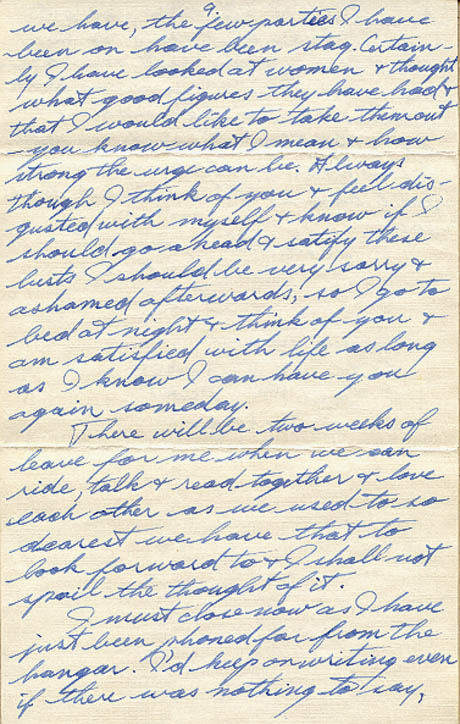 9.
we have, the few parties I have
been on have been stag. Certain-
ly I have looked at women & thought
what good figures they have had &
that I would like to take them out
- you know what I mean & how
strong the urge can be. Always
though I think of you & feel dis-
gusted with myself & know if I
should go ahead & satify these
lusts I should be very sorry &
ashamed afterwards, so I go to
bed at night & think of you &
am satisfied with life as long
as I know I can have you
again someday.
There will be two weeks of
leave for me when we can
ride, talk & read together & love
each other as we used to so
dearest we have that to
look forward to & I shall not
spoil the thought of it.
I must close now as I have
just been phoned for from the
hangar. I'd keep on writing even
if there was nothing to say,